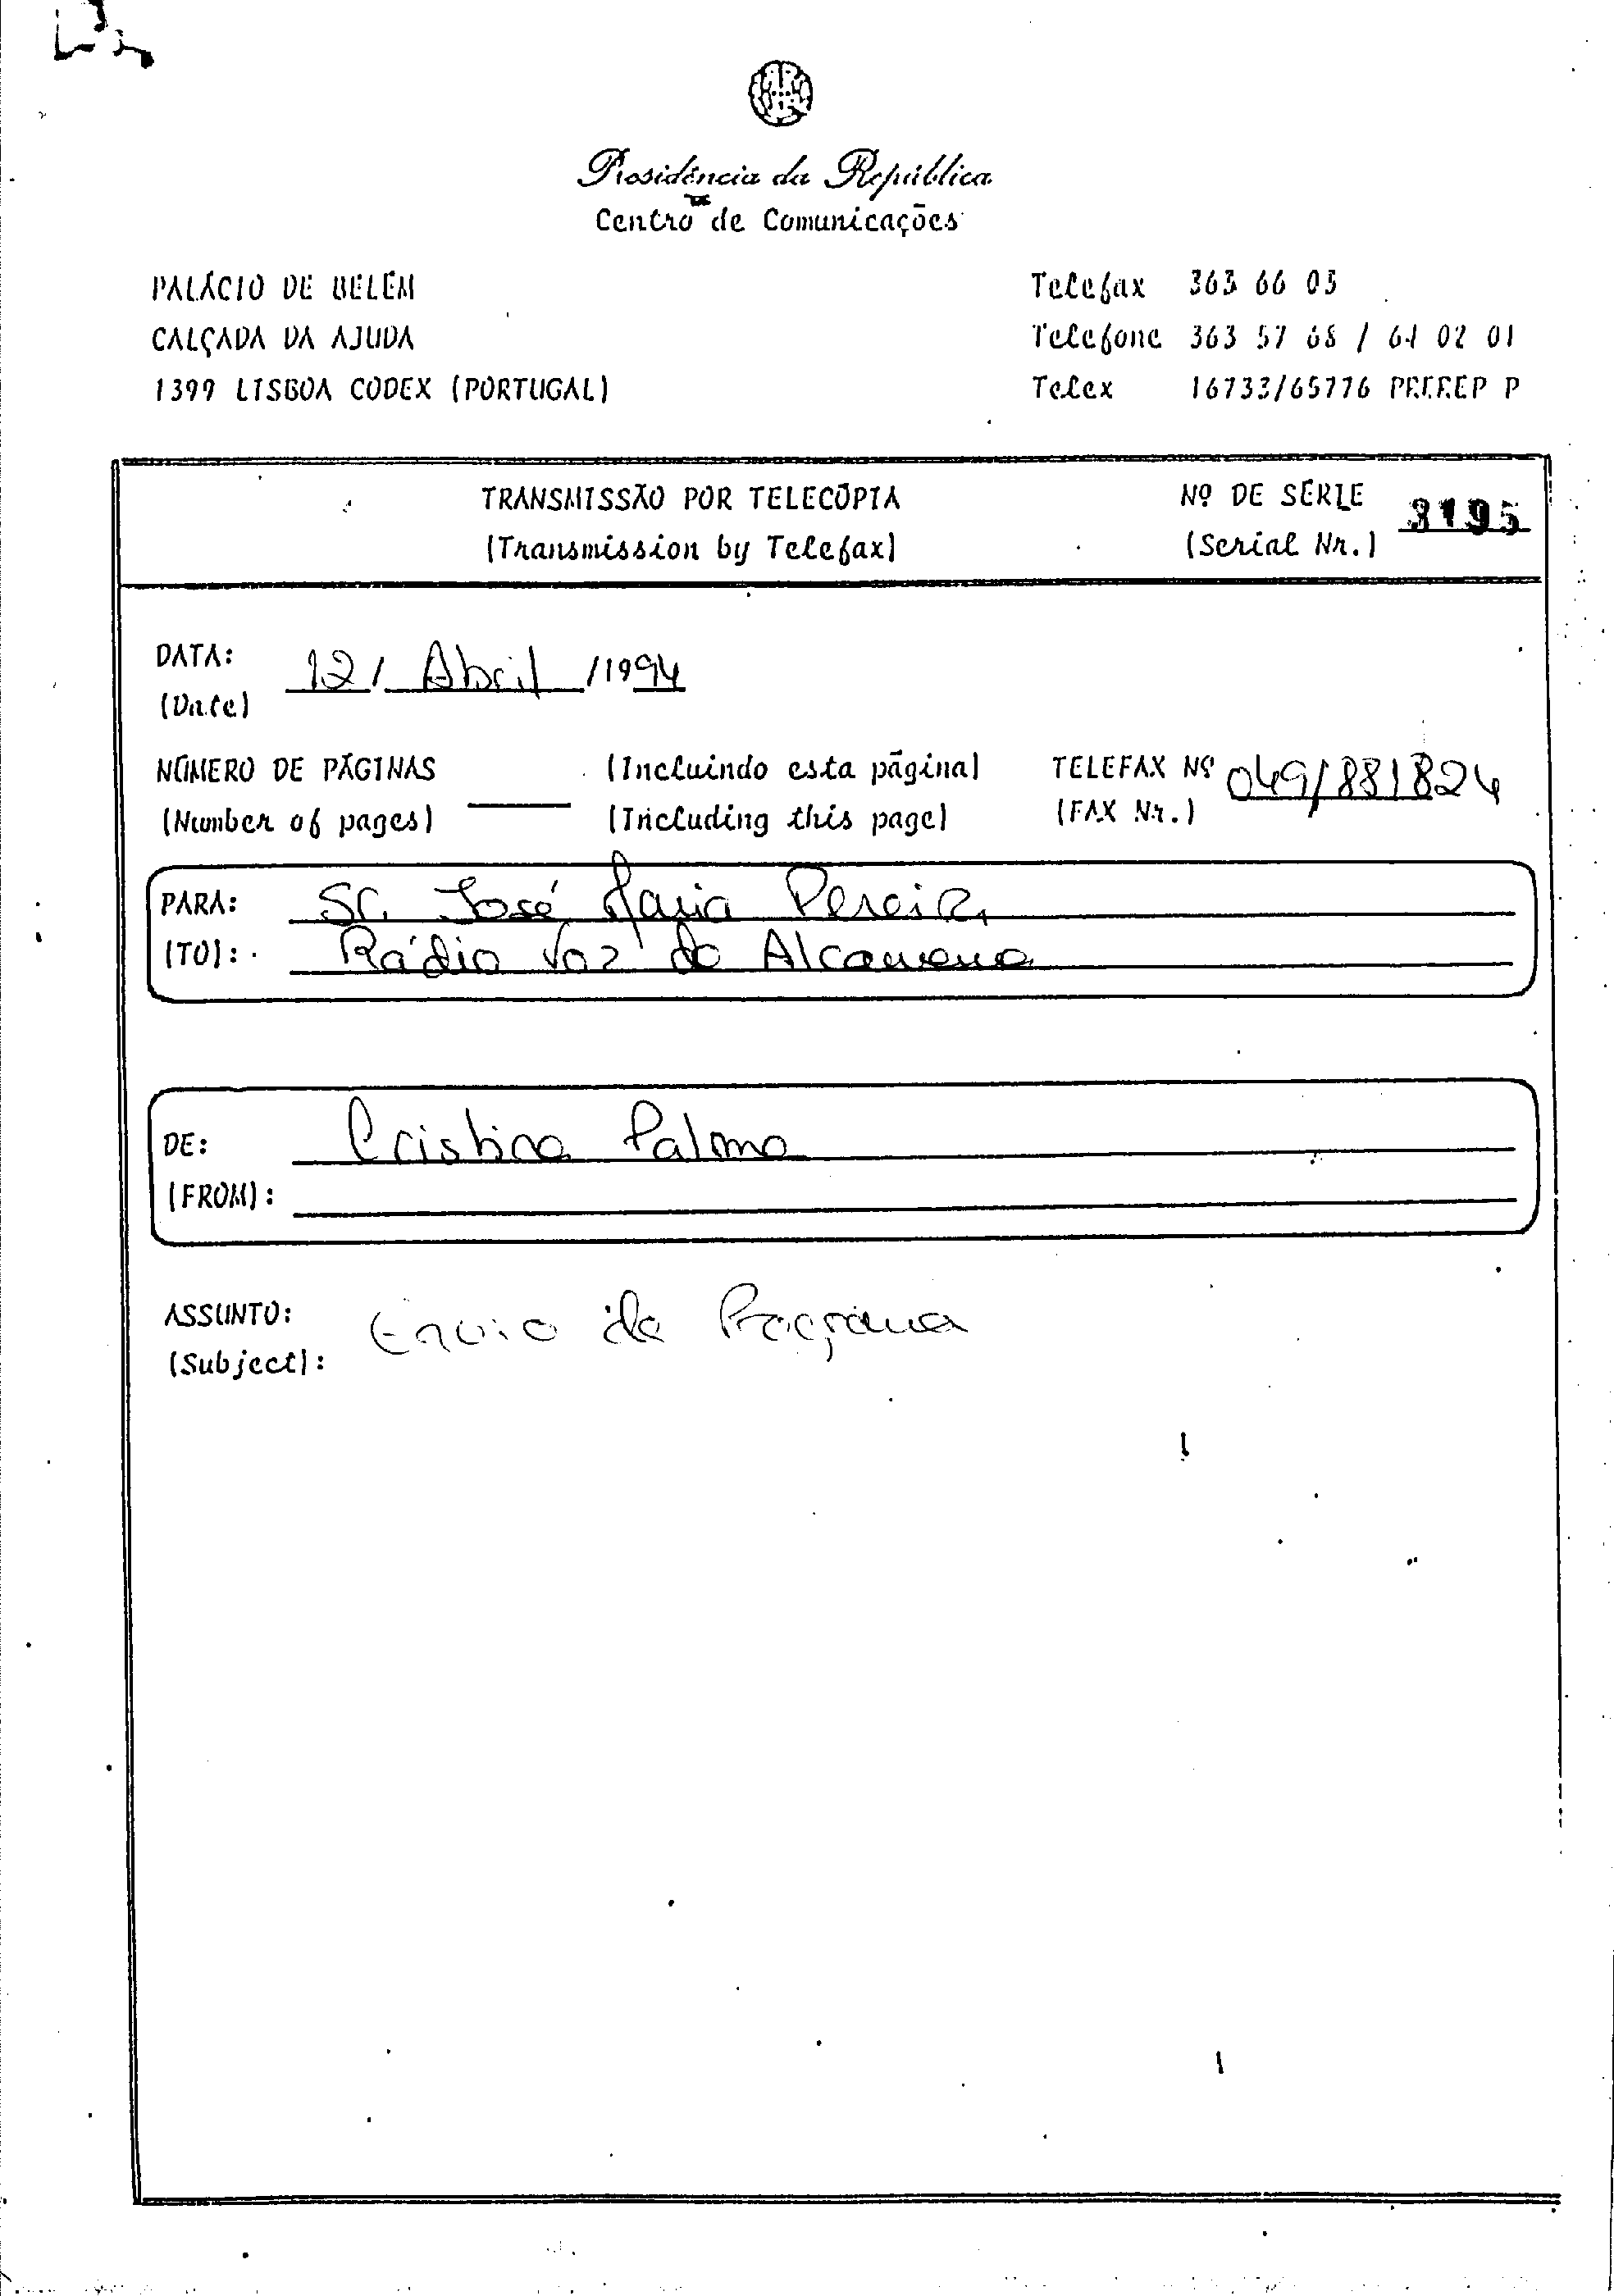 Presidência da República
Centro de Comunicações
PALÁCIO DE BELÉM
CALÇADA DA AJUDA
1399 LISBOA CODEX (PORTUGAL)
Telefax 363 66 03
Telefone 363 57 68 / 64 02 01
Telex 16733/65776
TRANSMISSÃO POR TELECÓPIA
(Transmission by Telefax)
Nº DE SÉRIE
(Serial Nr.) 3195
DATA: 12 / Abril / 1994
(Date)
NÚMERO DE PÁGINAS (Incluindo esta página) TELEFAX Nº 049/881824
(Number of pages) (Including this page) (FAX Nr.)
PARA: Sr. José Maria Pereira
(TO): Rádio Voz de Alcanena
DE: Cristina Palma
(FROM):
ASSUNTO: Envio de Programa
(Subject):